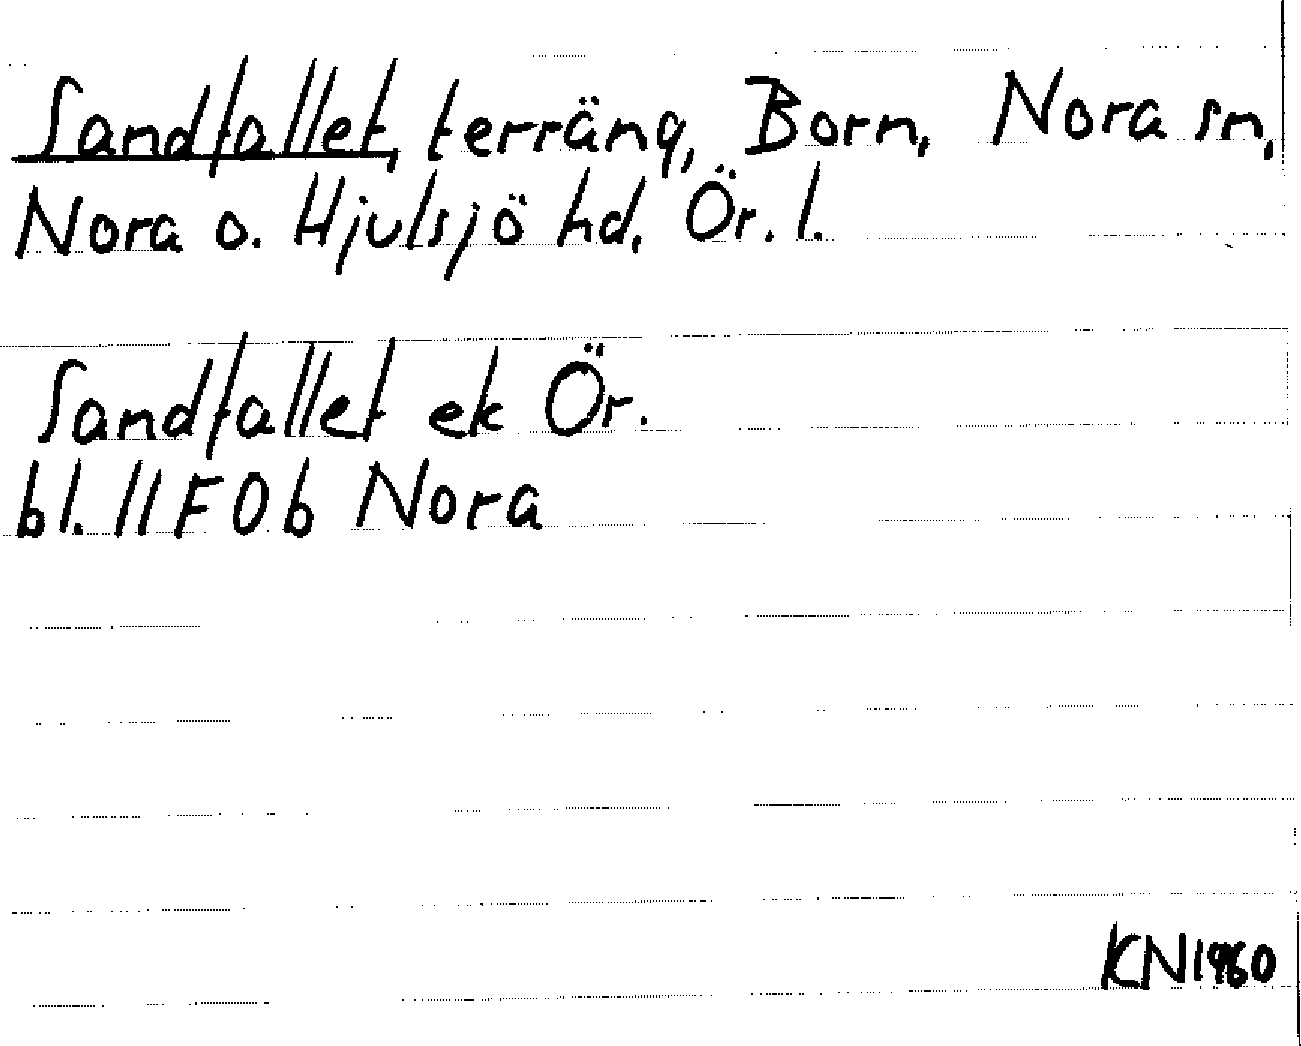 Sandfallet, terräng, Born, Nora sn,
Nora o. Hjulsjö hd, Ör. l.
Sandfallet ek Ör.
bl. 11F0b Nora
KN1960